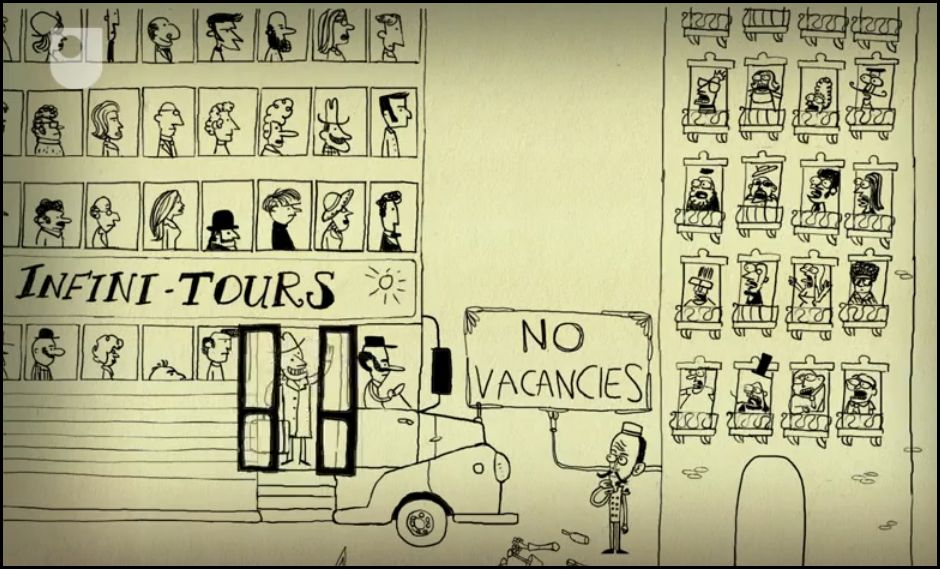 INFINI-TOURS
NO
VACANCIES